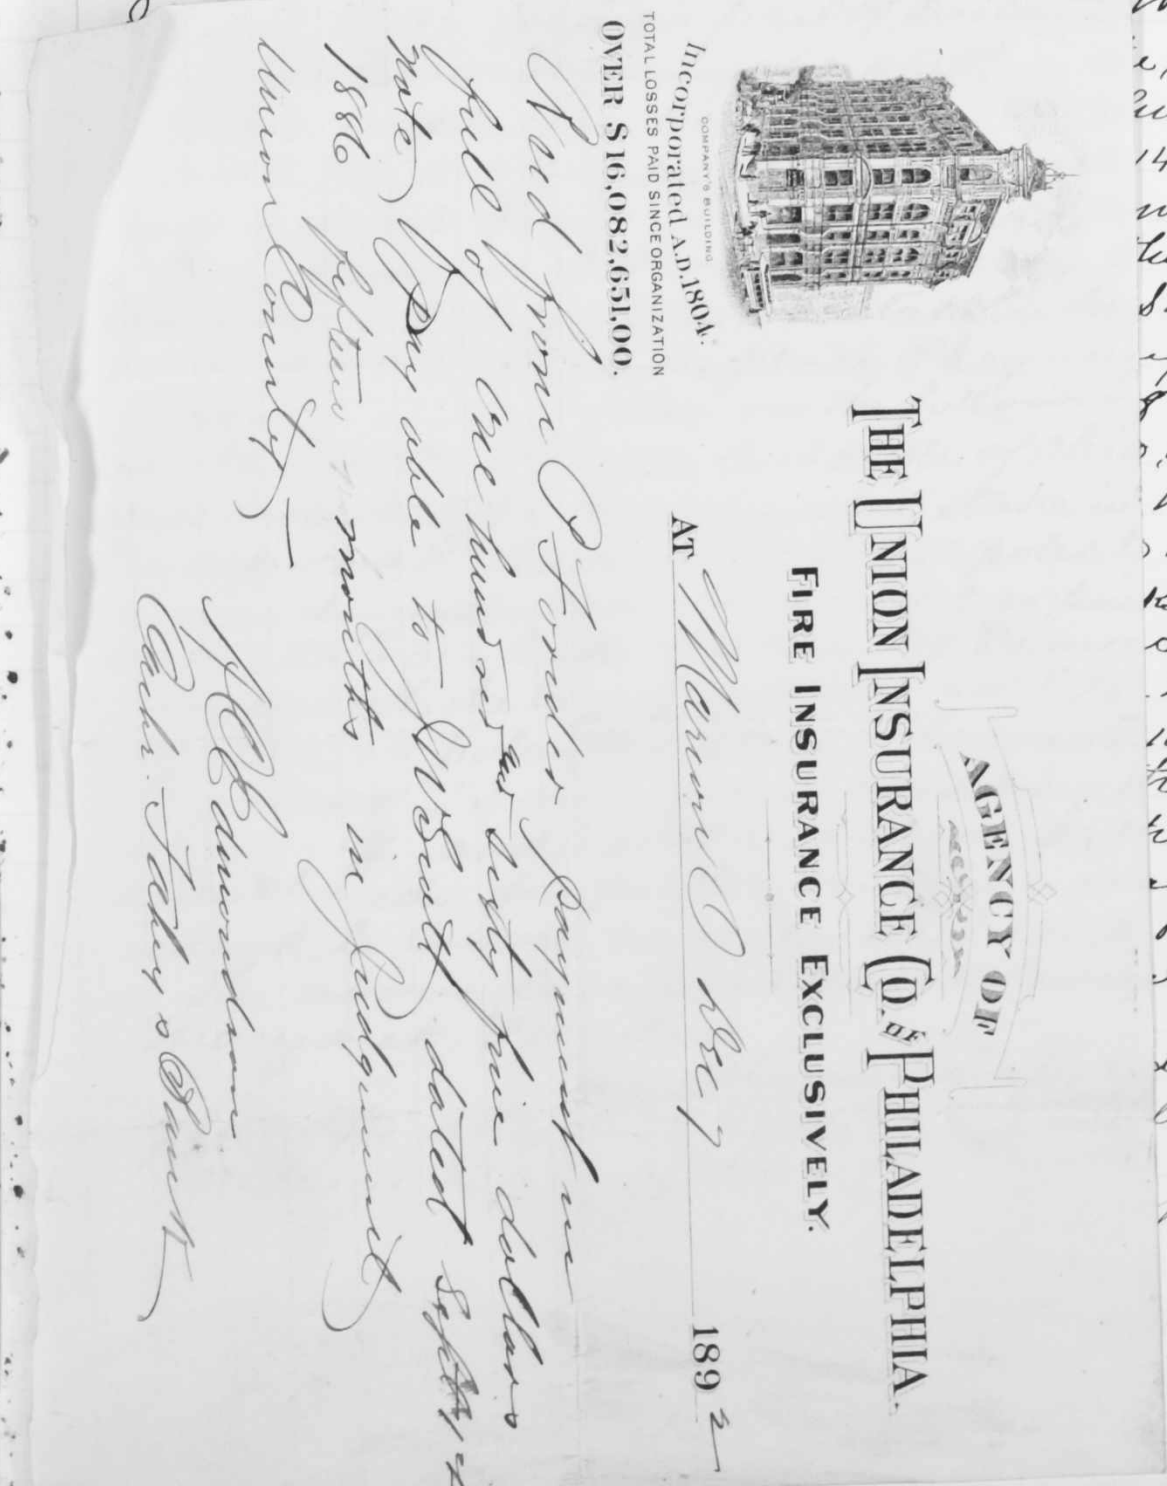 AGENCY OF
THE UNION INSURANCE CO. OF PHILADELPHIA.
FIRE INSURANCE EXCLUSIVELY.
COMPANY'S BUILDING
Incorporated A.D. 1804.
TOTAL LOSSES PAID SINCE ORGANIZATION
OVER $16,082,651.00.
AT Marion O Dec 7 1892
Recd from P Forder payment in
full of One hundred and sixty five dollars
note payable to J W Scott dated Sept
1886 fifteen months in Judgment
Union County
H C Edmondson
Cashr. Faheys Bank